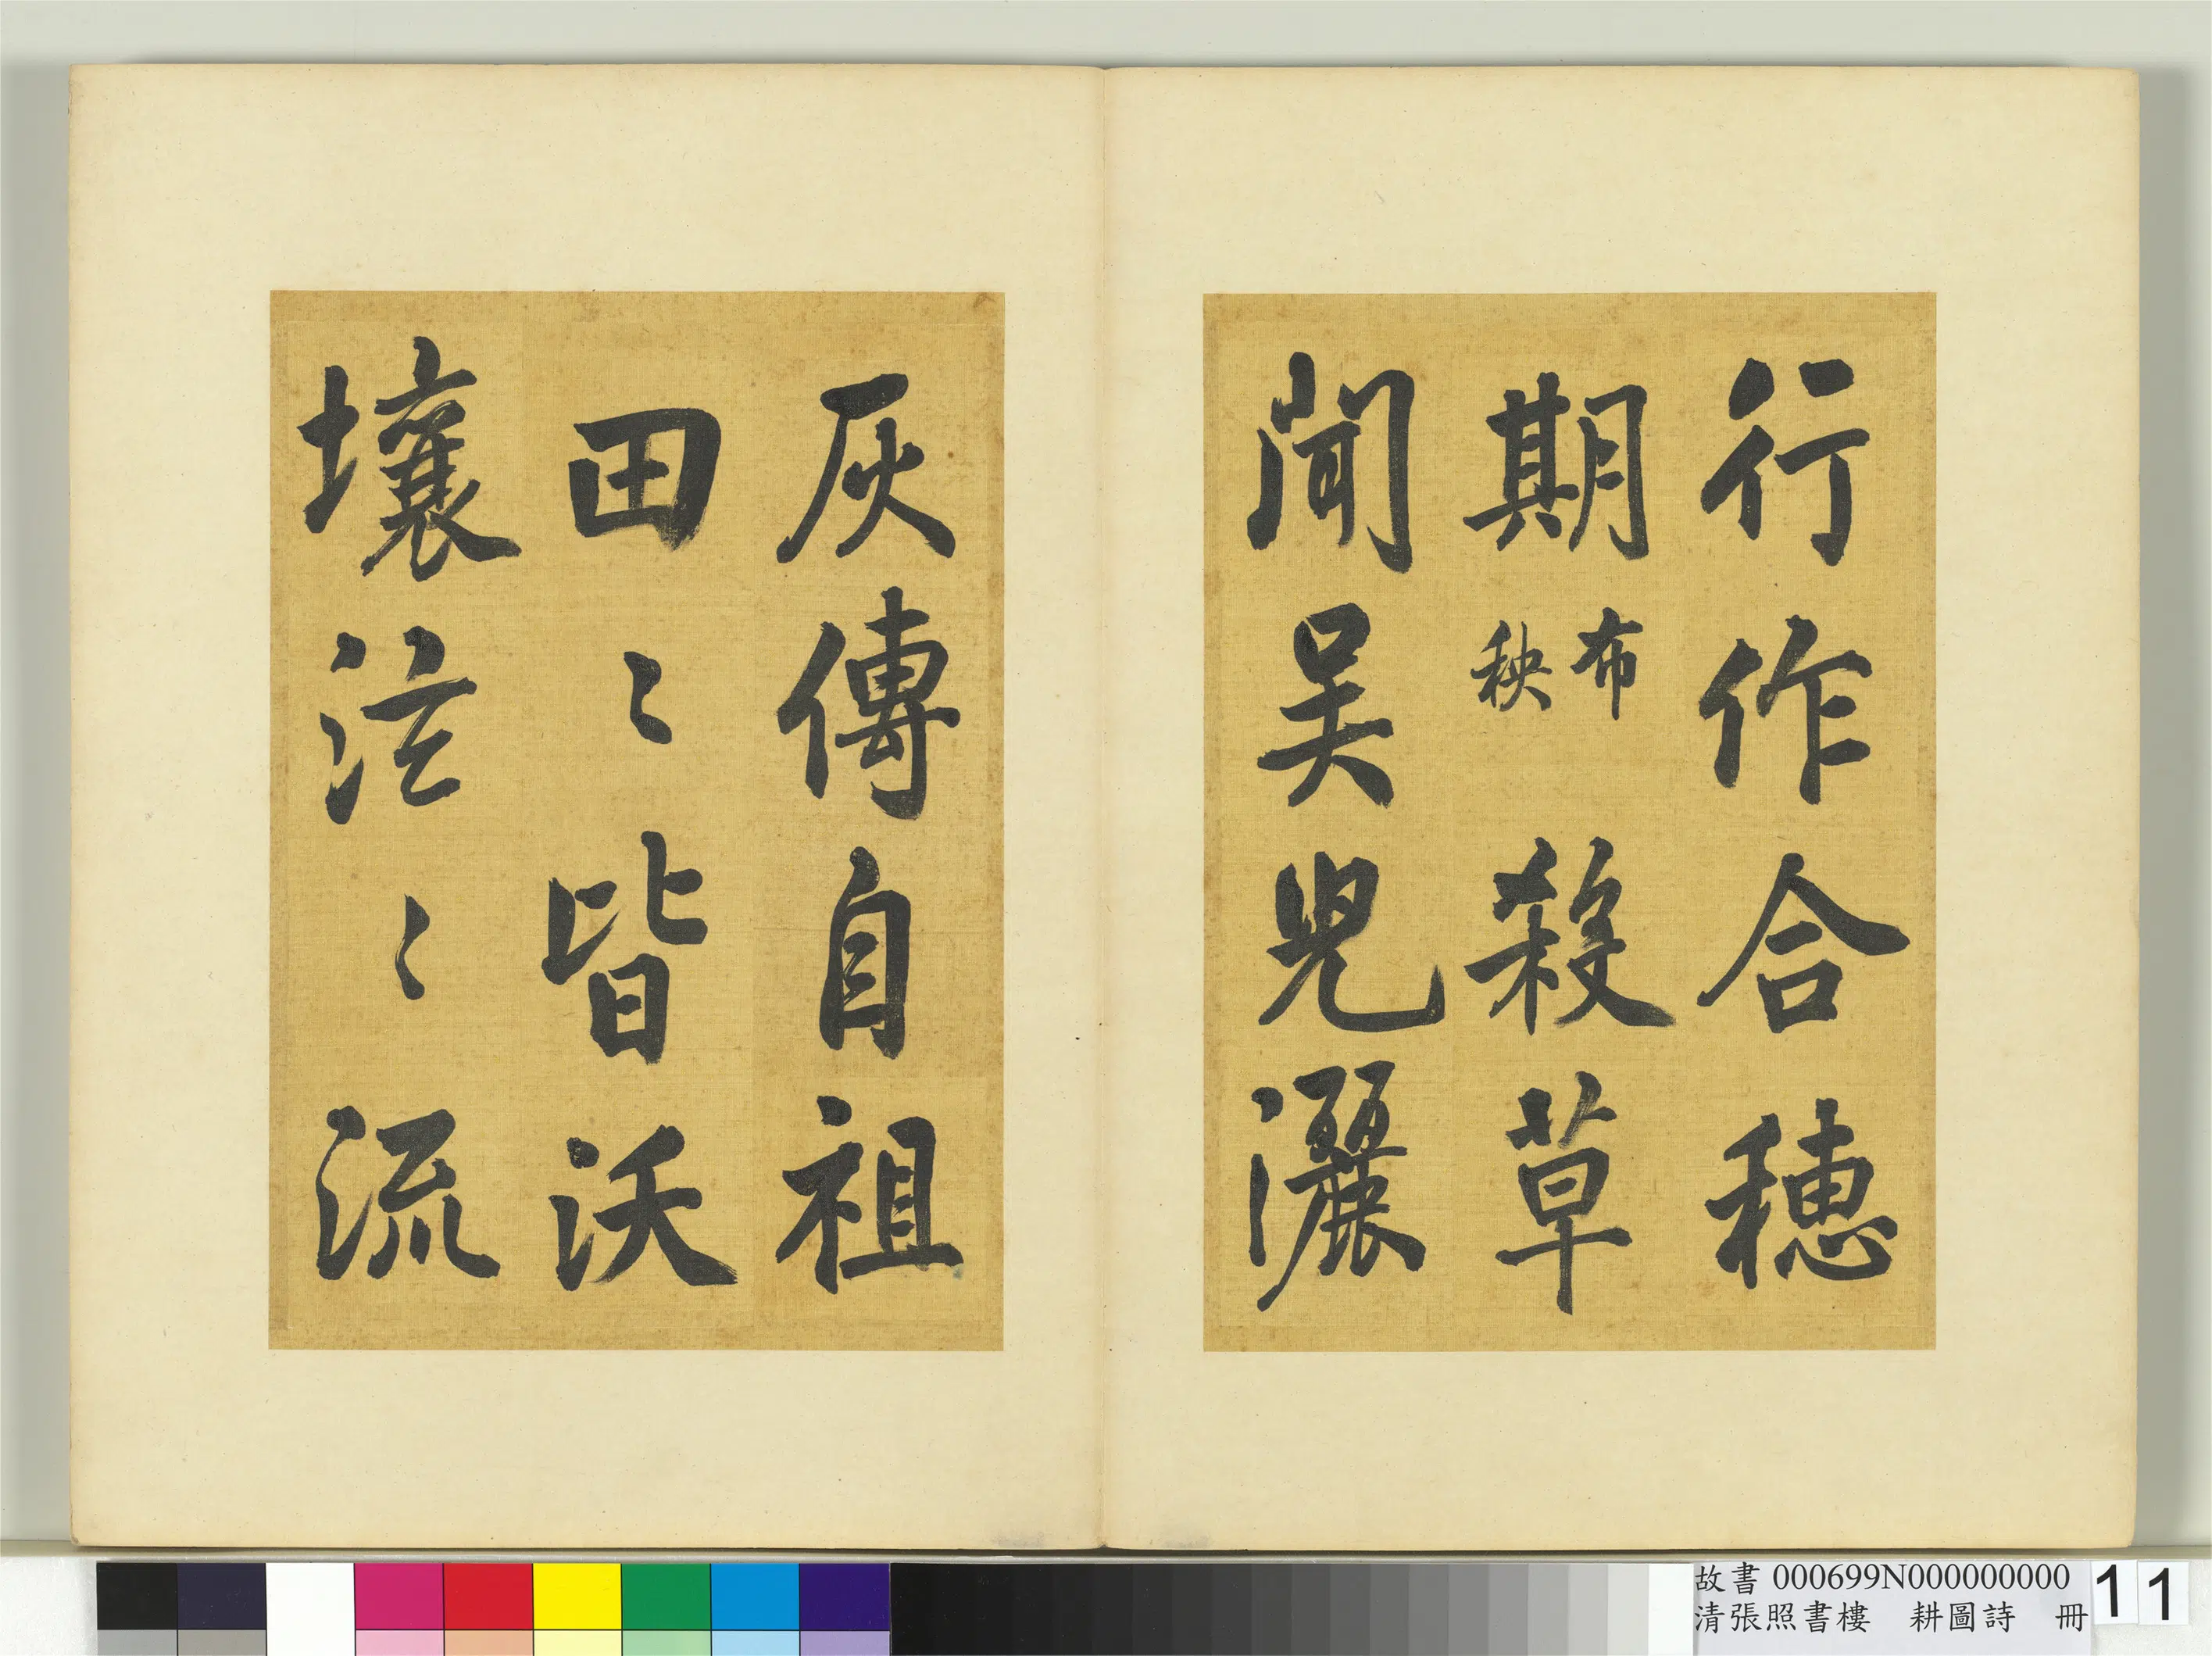 行作合穗
期布秧殺草
聞吴兒灑
灰傳自祖
田〻皆沃
壤泫〻流
故書 000699N000000000
清張照書樓 耕圖詩 冊
11